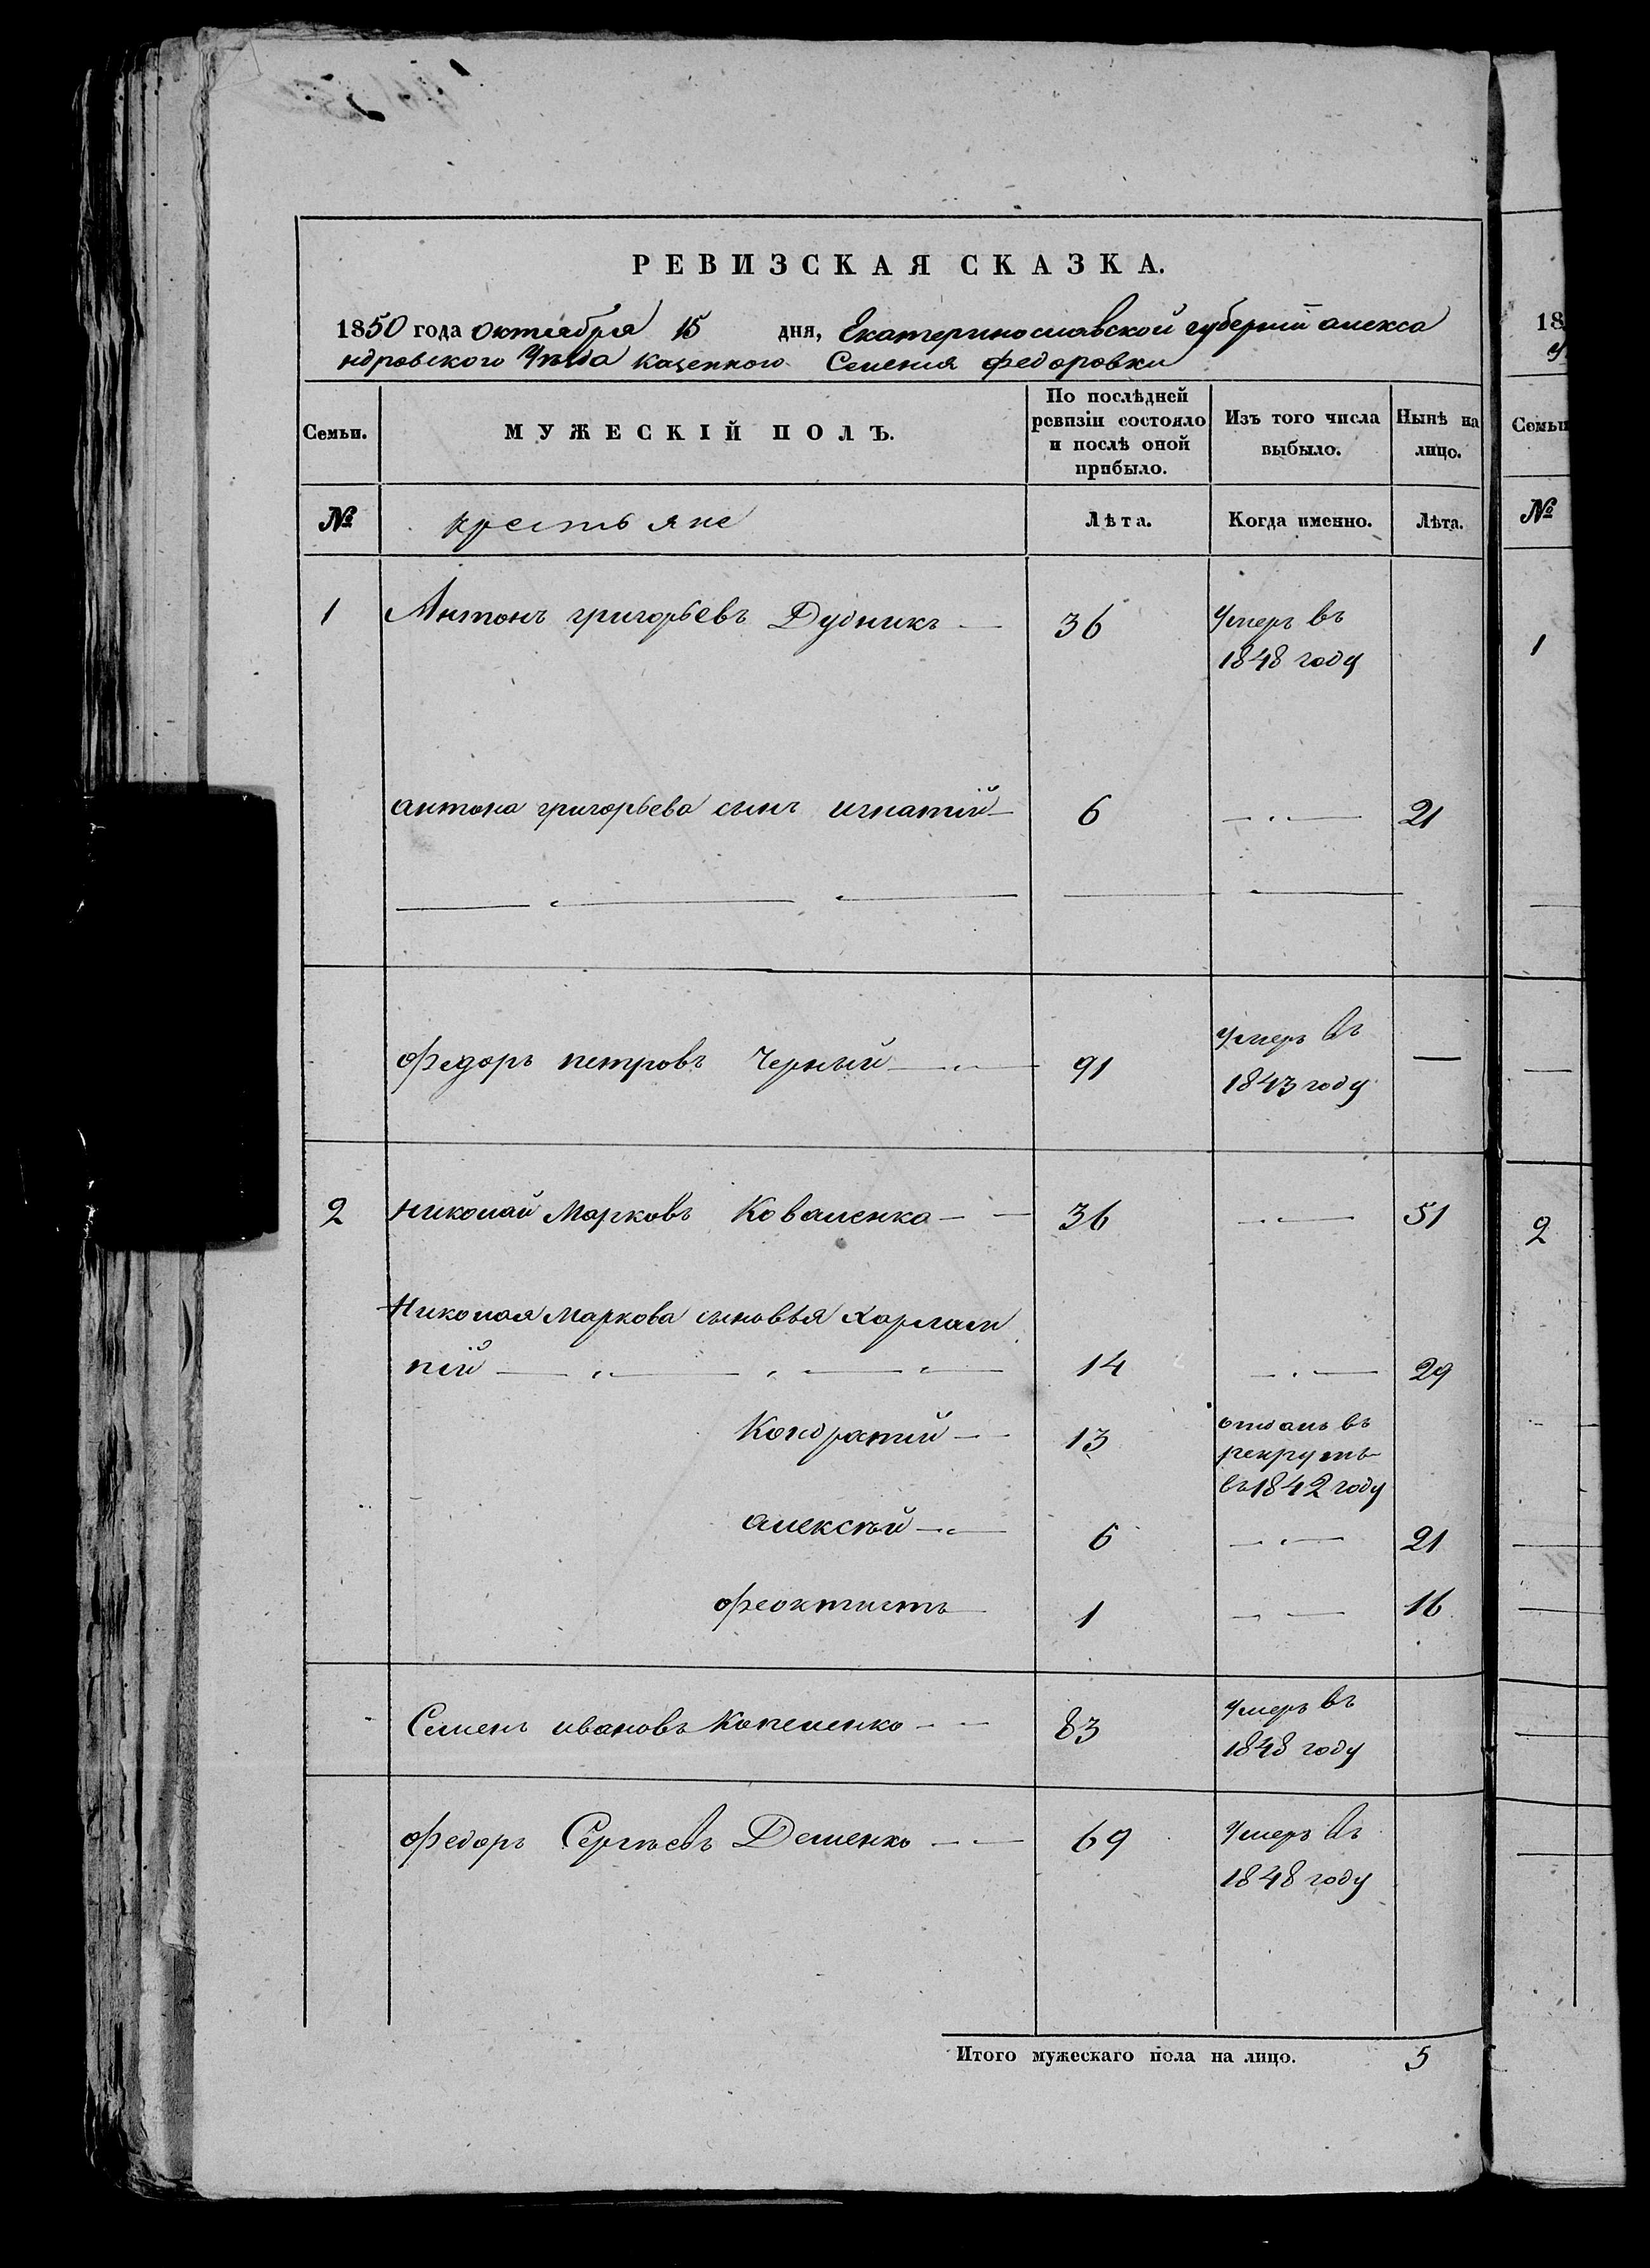 РЕВИЗСКАЯ СКАЗКА.
1850 года октября 15 дня, Екатеринославской губернии алекса
ндровского Уѣзда казенного Селения Федоровки
Семьи. МУЖЕСКІЙ ПОЛЪ. По послѣдней ревизіи состояло и послѣ оной прибыло. Изъ того числа выбыло. Нынѣ на лицо.
№ крестьяне Лѣта. Когда именно. Лѣта.
1 Антонъ григорьевъ Дудникъ 36 Умеръ въ
1848 году
антона григорьева сынъ игнатій 6 21
Федоръ петровъ Черный 91 умеръ въ
1843 году
2 николай Марковъ Коваленко 36 51
Николая Маркова сыновья Харлам
пій 14 29
Кондратий 13 отданъ въ
рекруты
въ 1842 году
алексѣй 6 21
феоктистъ 1 16
Семенъ ивановъ Копеленко 83 Умеръ въ
1848 году
Федоръ Сергѣевъ Деменко 69 Умеръ въ
1848 году
Итого мужескаго пола на лицо. 5
18
Семьи
№
1
2